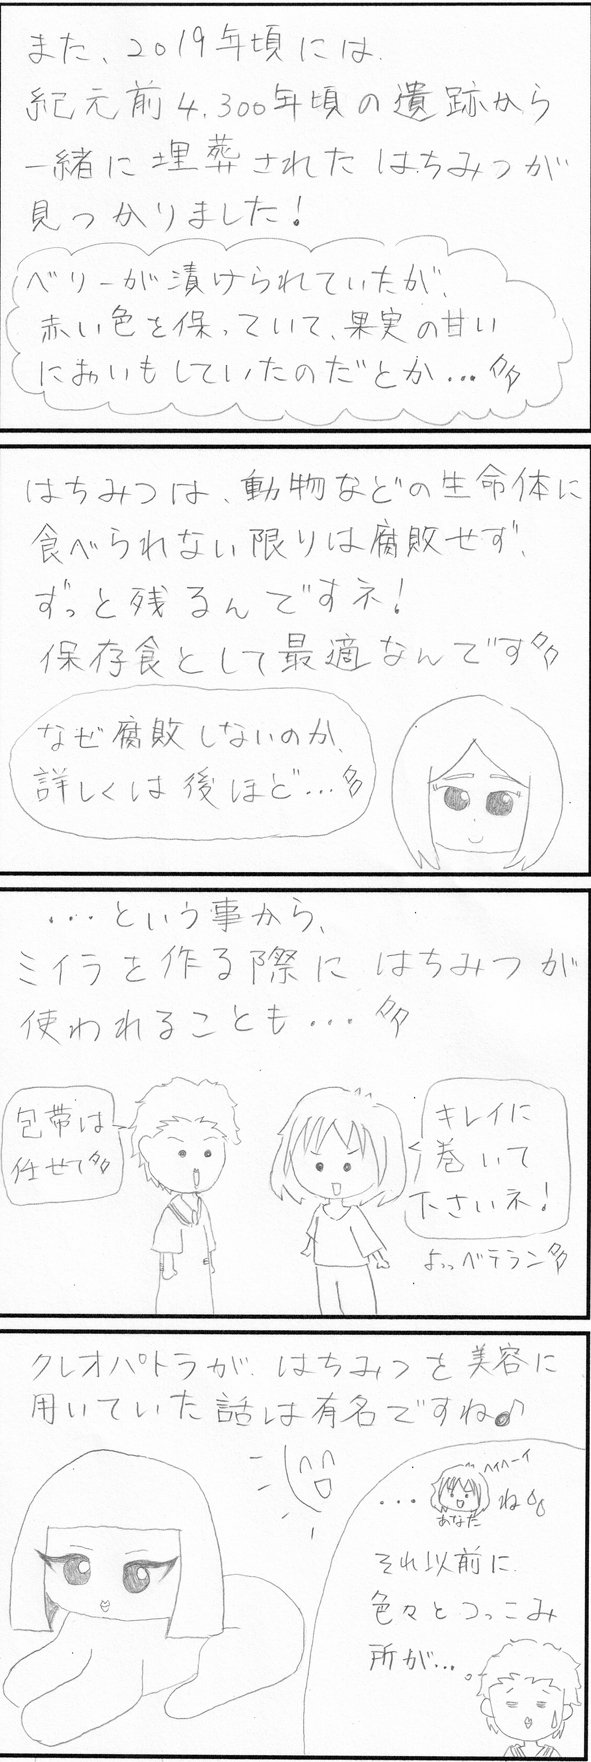 また、2019年頃には
紀元前4,300年頃の遺跡から
一緒に埋葬された はちみつが
見つかりました!
ベリーが漬けられていたが、
赤い色を保っていて、果実の甘い
においもしていたのだとか…多
はちみつは、動物などの生命体に
食べられない限りは腐敗せず、
ずっと残るんですネ!
保存食として最適なんです多
なぜ腐敗しないのか、
詳しくは後ほど…多
…という事から、
ミイラを作る際に はちみつが
使われることも…多
包帯は
任せて多
キレイに
巻いて
下さいネ!
よっベテラン多
クレオパトラが、はちみつを美容に
用いていた話は有名ですね♪
ヘイヘーイ
… ね
あなた
それ以前に
色々とつっこみ
所が…